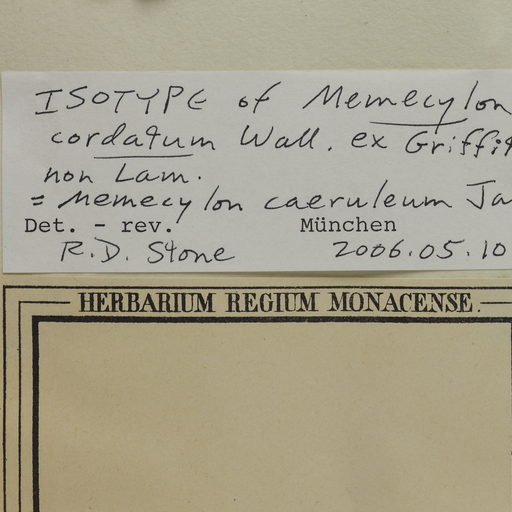 ISOTYPE of Memecylon
cordatum Wall. ex Griffit
non Lam.
= Memecylon caeruleum Ja
Det. - rev. München
R.D. Stone 2006.05.10
HERBARIUM REGIUM MONACENSE.